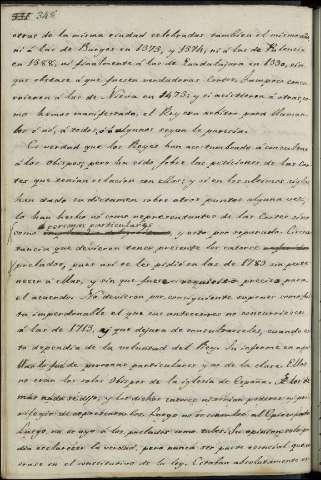 348
otras de la misma ciudad celebradas tambien el mismo año
ni á las de Burgos en 1373, y 1374; ni á las de Palencia
en 1388; ni finalmente á las de Guadalajara en 1390, sin
que obstase á que fuesen verdaderas Cortes. Tampoco concu
rrieron á las de Nieva en 1473; y si asistieron á otras, co
mo hemos manifestado, el Rey era arbitro para llamar
los ó no, á todos, ó á algunos segun le parecia.
Es verdad que los Reyes han acostumbrado á consultar
á los obispos; pero ha sido sobre las peticiones de las Cor
tes que tenian relacion con ellos; y si en los ultimos siglos
han dado su dictamen sobre otros puntos alguna vez,
lo han hecho no como representantes de las Cortes sino
como personas particulares, y esto por separado. Circuns
tancia que debieron tener presente los catorce
prelados, pues no se les pidió en las de 1789 sin perte
necer á ellas, y sin que fuese requisito preciso para
el acuerdo. No debieron por consiguiente suponer como fal
ta imperdonable el que sus antecesores no concurriesen
á las de 1713, y que dejara de consultarseles, cuando es
to dependia de la voluntad del Rey. Su informe en aque
llas fue de personas particulares y no de la clase. Ellos
no eran los solos obispos de la iglesia de España. A los de
mas nada se dijo; y los dichos catorce no tenian poderes ni pri
vilegio de representarlos. Luego no se consultó al Episcopado
luego no se oyó á los prelados como tales. Su opinion, sub
dia esclarecer la verdad, pero nunca ser parte esencial que
entrase en el constitutivo de la ley. Estaban absolutamente es